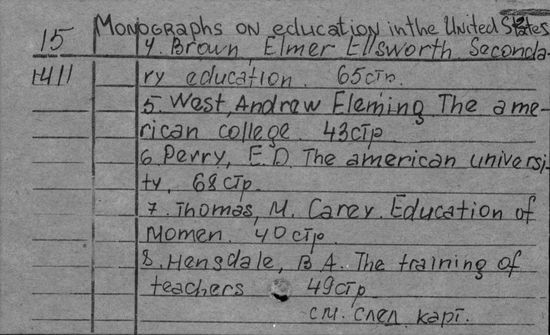 Monographs on education in the United States
15
4. Brown, Elmer Ellsworth. Seconda-
1411
ry education. 65стр.
5. West, Andrew Fleming. The ame-
rican college. 43стр
6. Perry, E.D. The american universi-
ty. 68стр.
7. Thomas, M. Carey. Education of
Women. 40стр.
8. Hensdale, B A. The training of
teachers 49стр
см. след. карт.